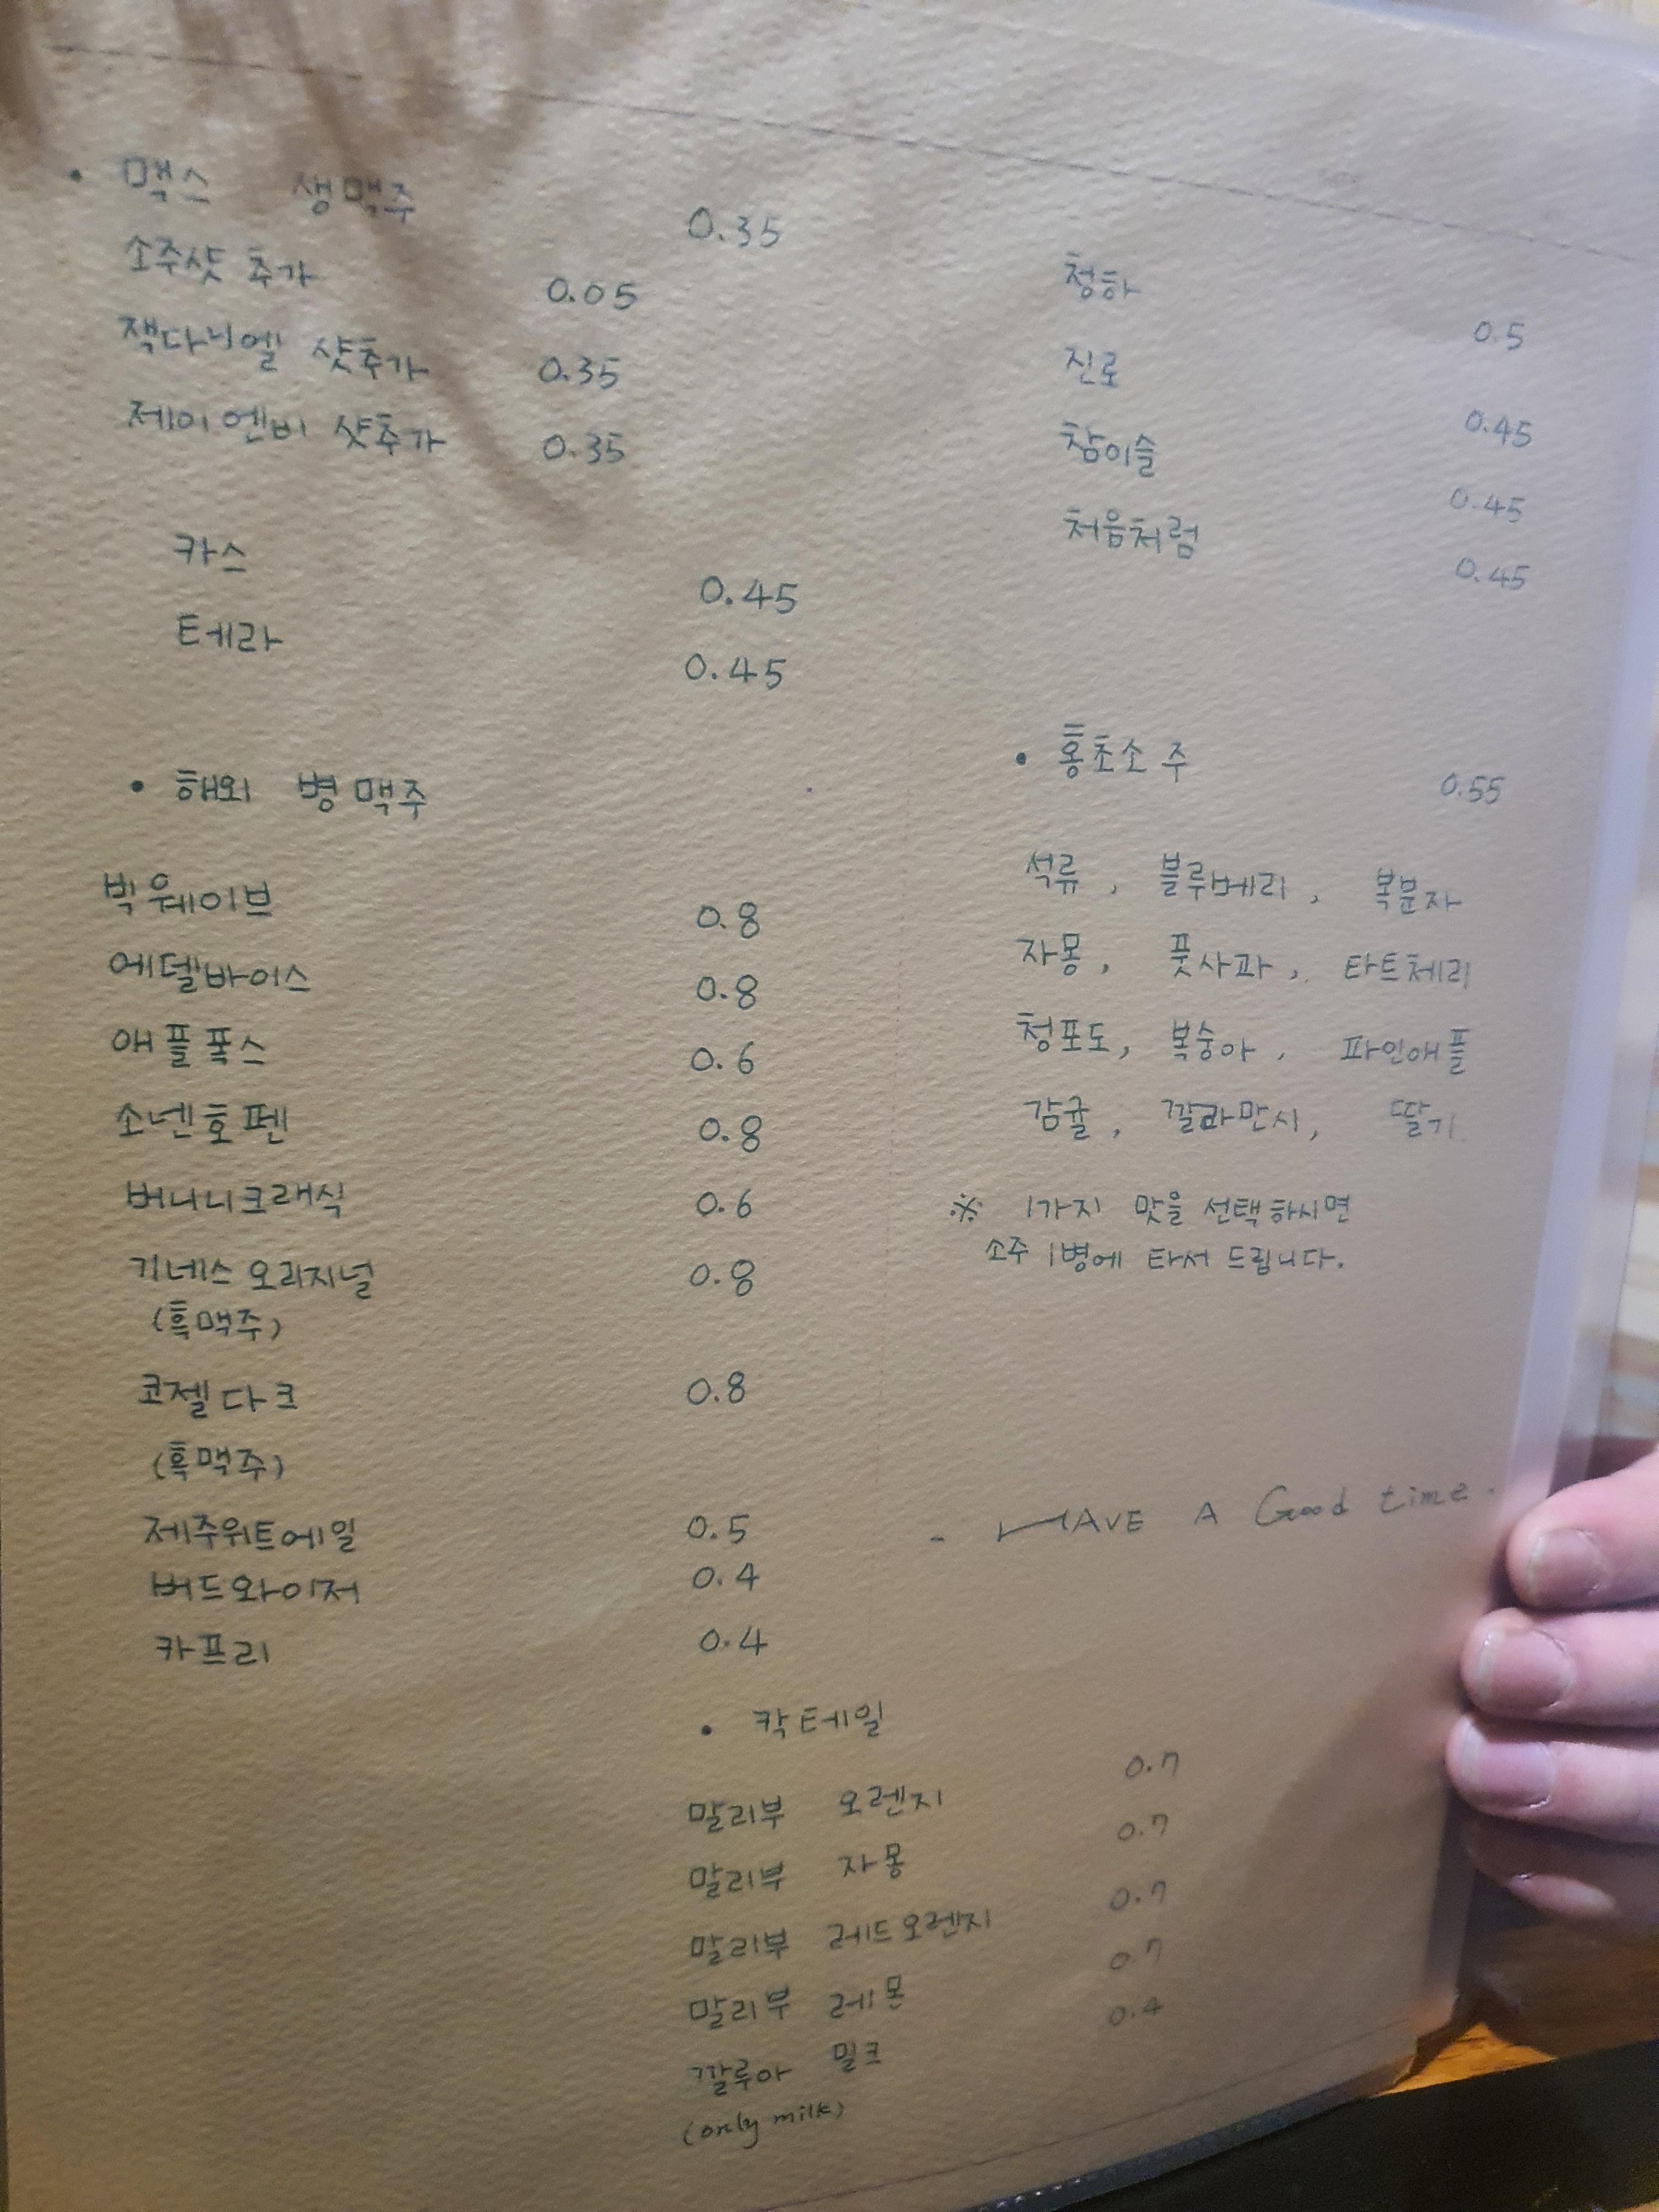 • 맥스 생맥주 0.35
소주샷 추가 0.05
잭다니엘 샷추가 0.35
제이엔비 샷추가 0.35
카스 0.45
테라 0.45
• 해외 병맥주
빅웨이브 0.8
에델바이스 0.8
애플폭스 0.6
소넨호펜 0.8
버니니크래식 0.6
기네스 오리지널 0.8
(흑맥주)
코젤다크 0.8
(흑맥주)
제주위트에일 0.5
버드와이저 0.4
카프리 0.4
청하 0.5
진로 0.45
참이슬 0.45
처음처럼 0.45
• 홍초소주 0.55
석류, 블루베리, 복분자
자몽, 풋사과, 타트체리
청포도, 복숭아, 파인애플
감귤, 깔라만시, 딸기
※ 1가지 맛을 선택하시면
소주 1병에 타서 드립니다.
- HAVE A Good time.
• 칵테일
말리부 오렌지 0.7
말리부 자몽 0.7
말리부 레드오렌지 0.7
말리부 레몬 0.7
깔루아 밀크 0.4
(only milk)